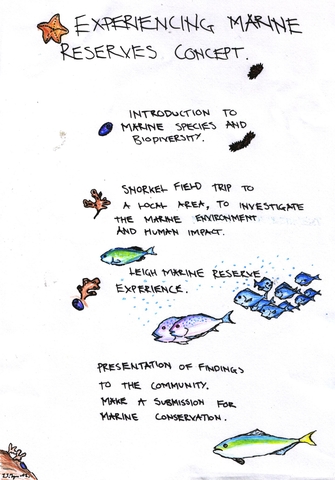 EXPERIENCING MARINE
RESERVES CONCEPT.
INTRODUCTION TO
MARINE SPECIES AND
BIODIVERSITY.
SNORKEL FIELD TRIP TO
A LOCAL AREA, TO INVESTIGATE
THE MARINE ENVIRONMENT
AND HUMAN IMPACT.
LEIGH MARINE RESERVE
EXPERIENCE.
PRESENTATION OF FINDINGS
TO THE COMMUNITY.
MAKE A SUBMISSION FOR
MARINE CONSERVATION.